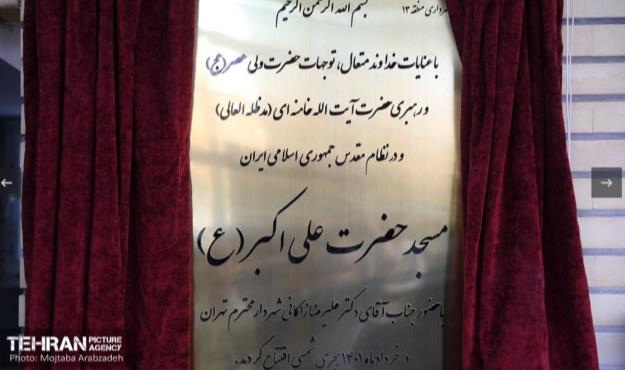 شهرداری منطقه ۱۳
بسم الله الرحمن الرحیم
با عنایات خداوند متعال، توجهات حضرت ولی عصر (عج)
و رهبری حضرت آیت الله خامنه ای (مدظله العالی)
و در نظام مقدس جمهوری اسلامی ایران
مسجد حضرت علی اکبر (ع)
با حضور جناب آقای دکتر علیرضا زاکانی شهردار محترم تهران
در خرداد ماه ۱۴۰۱ هجری شمسی افتتاح گردید.
TEHRAN PICTURE AGENCY
Photo: Mojtaba Arabzadeh